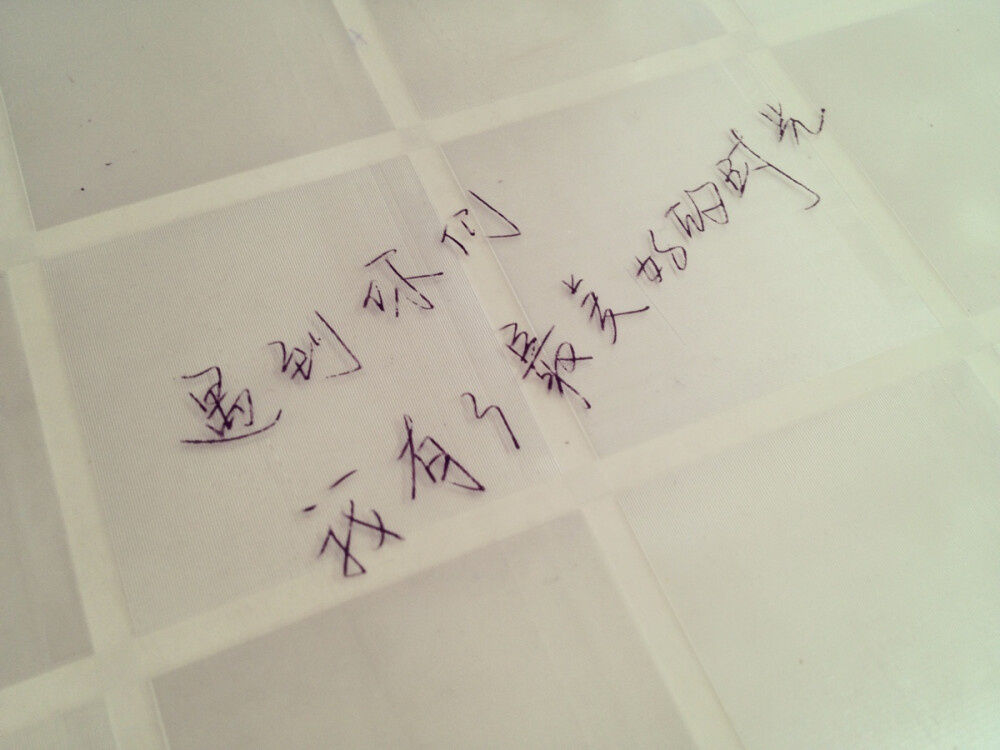 遇到你们
我有了最美好的时光